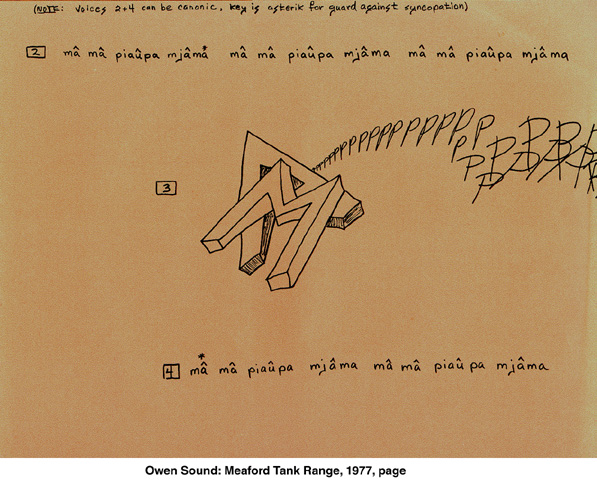 (NOTE: Voices 2+4 can be canonic, key is asterik for guard against syncopation)
2 mâ mâ piaûpa mjâmâ* mâ mâ piaûpa mjâma mâ mâ piaûpa mjâma
PPPPPPPPPPPPPP
3
M
*
4 mâ mâ piaûpa mjâma mâ mâ piaûpa mjâma
Owen Sound: Meaford Tank Range, 1977, page